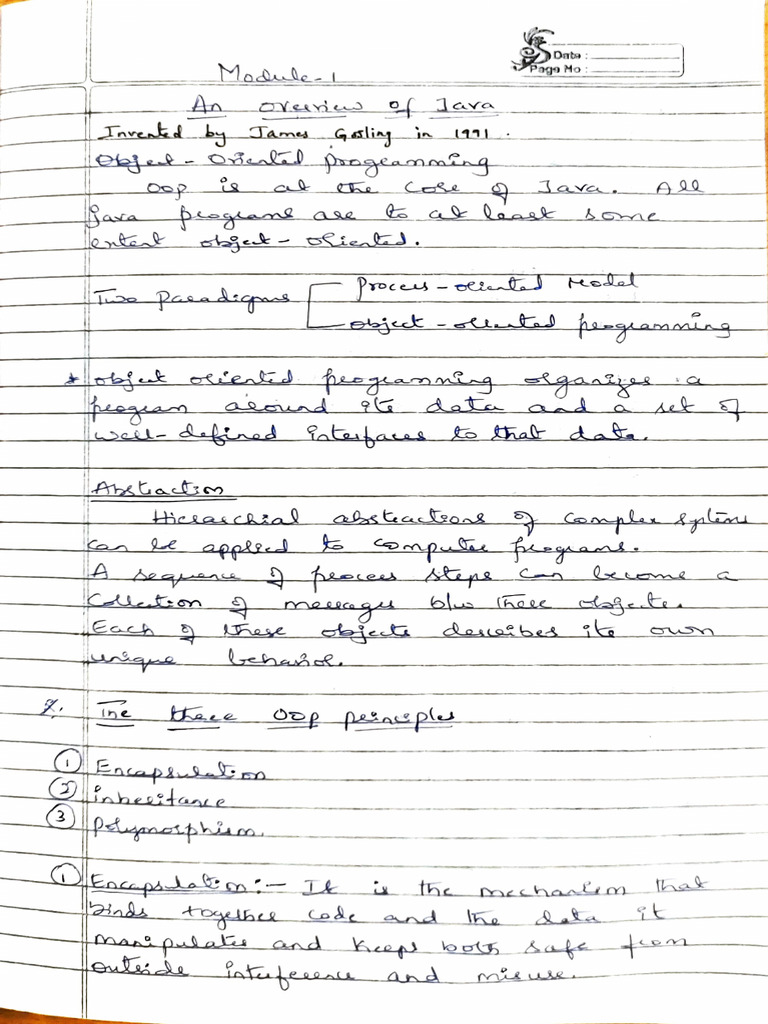 Date :
Page No :
Module-1
An overview of Java
Invented by James Gosling in 1991.
Object-Oriented programming
OOP is at the core of Java. All
java programs are to at least some
entent object-oriented.
Two Paradigms
Process-oriented Model
object-oriented programming
* object oriented programming organizes a
program around its data and a set of
well-defined interfaces to that data.
Abstraction
Hierarchial abstractions of complex systems
can be applied to computer programs.
A sequence of process steps can become a
Collection of messages b/w these objects.
Each of these objects describes its own
unique behavior.
The three OOP principles
① Encapsulation
② inheritance
③ polymorphism.
① Encapsulation:- It is the mechanism that
binds together code and the data it
manipulates and keeps both safe from
outside interference and misuse.